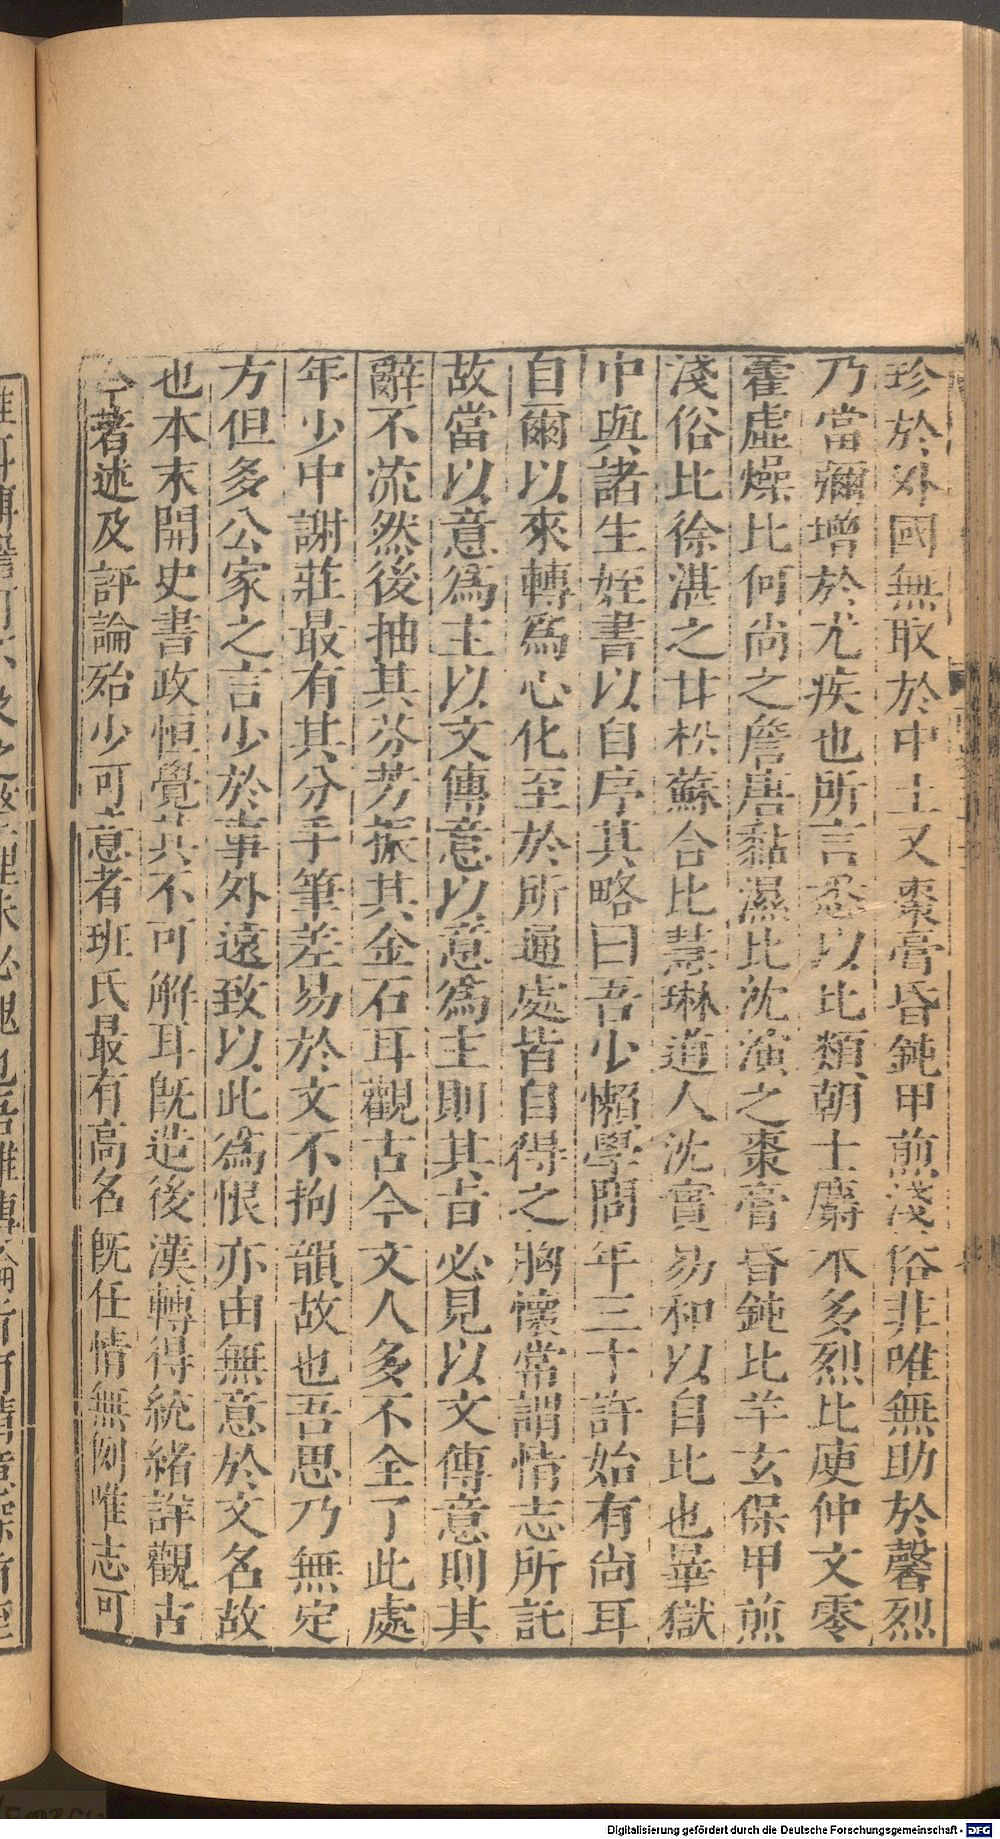 珍於外國無取於中土又棗膏昏鈍甲煎淺俗非唯無助於馨烈
乃當彌增於尤疾也所言悉以比類朝士麝本多烈比庾仲文零
藿虛燥比何尚之詹唐黏濕比沈演之棗膏昏鈍比羊玄保甲煎
淺俗比徐湛之甘松蘇合比慧琳道人沈實易和以自比也畢獄
中與諸生姪書以自序其略曰吾少懶學問年三十許始有尚耳
自爾以來轉為心化至於所通處皆自得之胸懷常謂情志所託
故當以意為主以文傳意以意為主則其旨必見以文傳意則其
辭不流然後抽其芬芳振其金石耳觀古今文人多不全了此處
年少中謝莊最有其分手筆差易於文不拘韻故也吾思乃無定
方但多公家之言少於事外遠致以此為恨亦由無意於文名故
也本末開史書政恒覺其不可解耳既造後漢轉得統緒詳觀古
今著述及評論殆少可意者班氏最有高名既任情無例唯志可
Digitalisierung gefördert durch die Deutsche Forschungsgemeinschaft - DFG